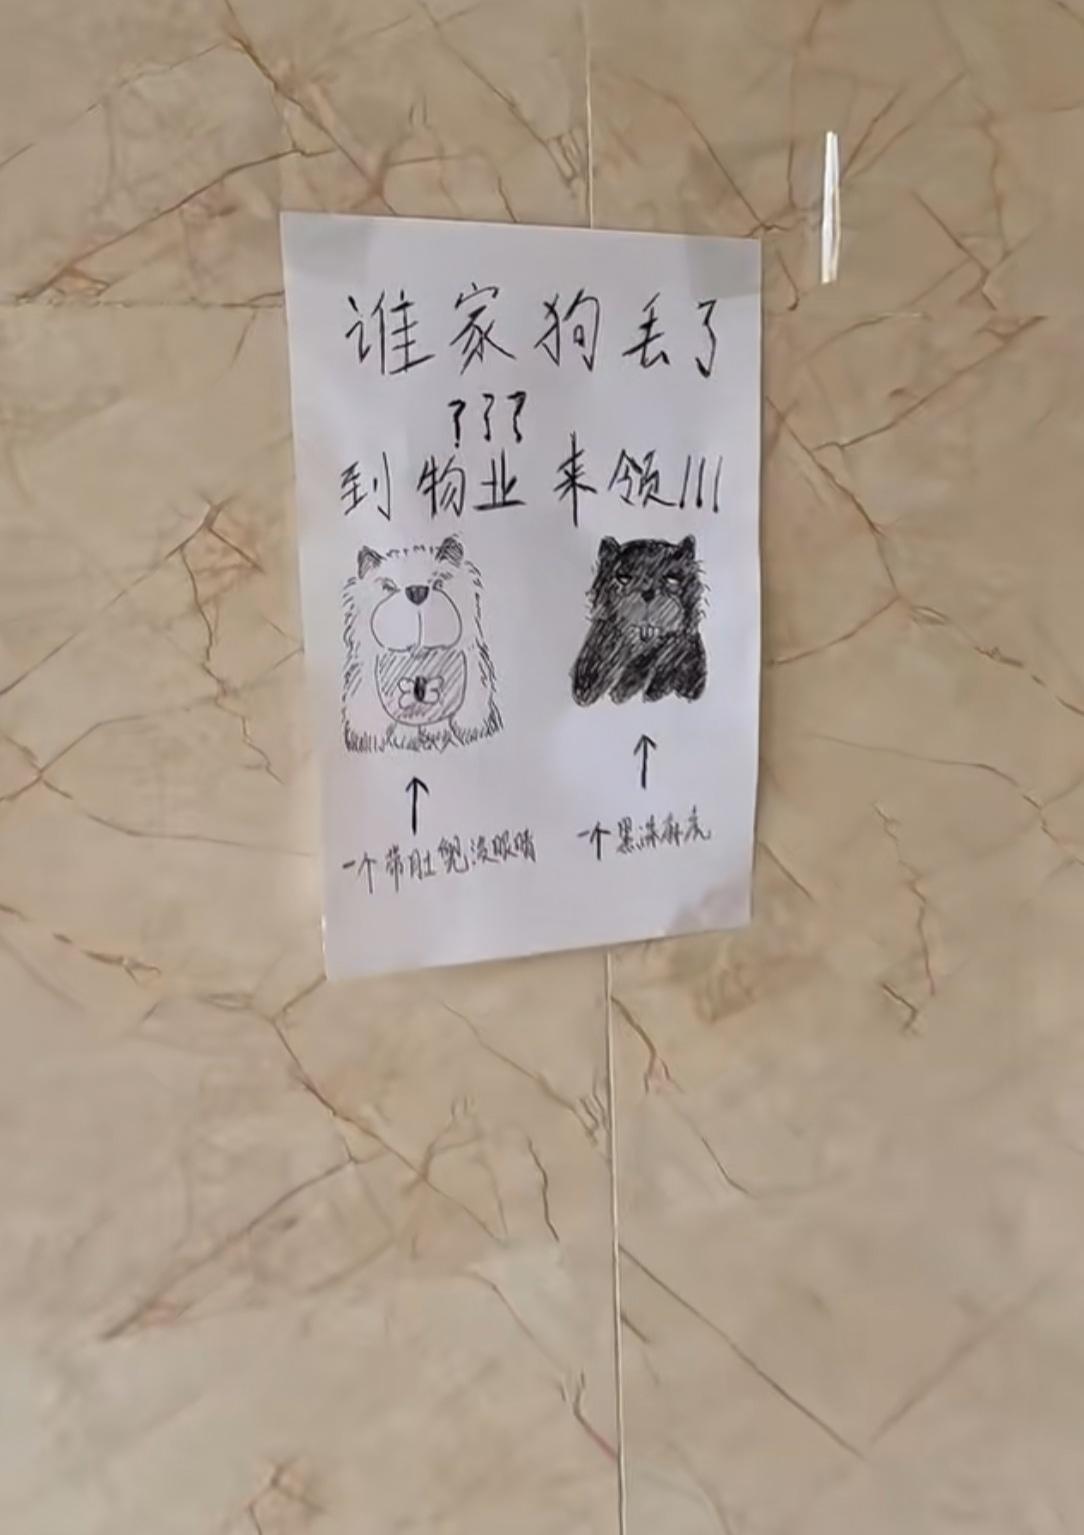 谁家狗丢了
???
到物业来领!!!
一个带肚兜没眼睛
一个黑漆麻虎